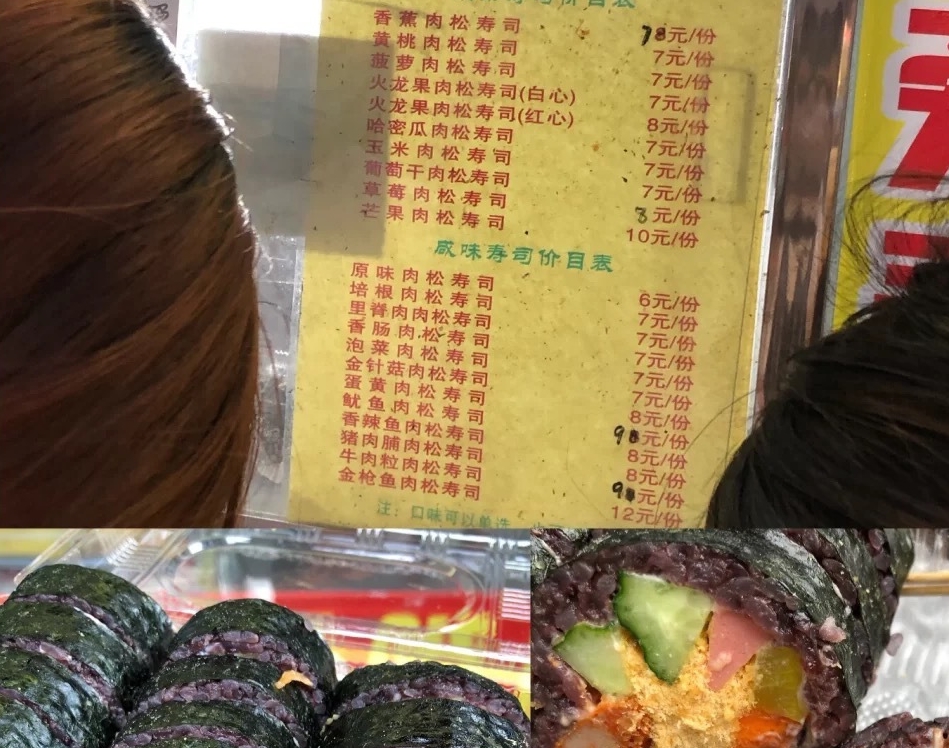 寿司价目表
香蕉肉松寿司 78元/份
黄桃肉松寿司 7元/份
菠萝肉松寿司 7元/份
火龙果肉松寿司(白心) 7元/份
火龙果肉松寿司(红心) 8元/份
哈密瓜肉松寿司 7元/份
玉米肉松寿司 7元/份
葡萄干肉松寿司 7元/份
草莓肉松寿司 元/份
芒果肉松寿司 10元/份
咸味寿司价目表
原味肉松寿司 6元/份
培根肉松寿司 7元/份
里脊肉肉松寿司 7元/份
香肠肉松寿司 7元/份
泡菜肉松寿司 7元/份
金针菇肉松寿司 7元/份
蛋黄肉松寿司 8元/份
鱿鱼肉松寿司 9元/份
香辣鱼肉松寿司 8元/份
猪肉脯肉松寿司 8元/份
牛肉粒肉松寿司 9元/份
金枪鱼肉松寿司 12元/份
注：口味可以单选